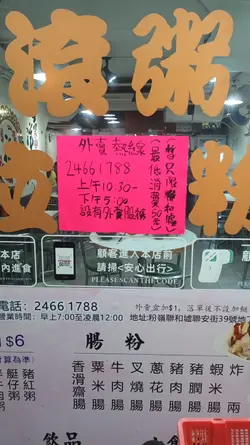 滾粥
外賣熱線
24661788
上午10:30-
下午5:00
設有外賣服務
(暫只限聯和墟
最低消費50元)
本店
內進食
顧客進入本店前
請掃<安心出行>
PLEASE SCAN THE CODE
電話：2466 1788
外賣盒加$1，落單後不設加
營業時間：早上7:00至凌晨12:00
地址:粉嶺聯和墟聯安街39號地
$6
腸粉
香滑齋腸
粟米腸
牛肉腸
叉燒腸
蔥花腸
豬肉腸
豬膶腸
蝦米腸
炸兩